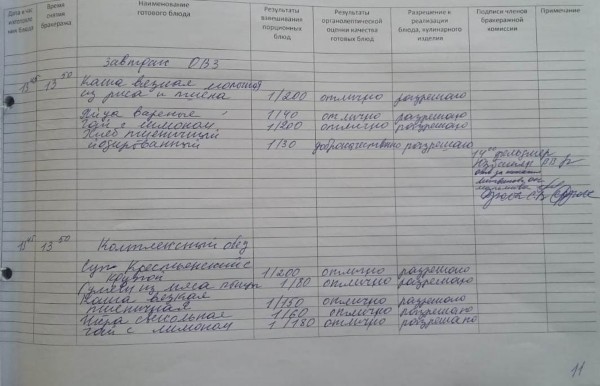 Дата и час изготовления блюда
Время снятия бракеража
Наименование готового блюда
Результаты взвешивания порционных блюд
Результаты органолептической оценки качества готовых блюд
Разрешение к реализации блюда, кулинарного изделия
Подписи членов бракеражной комиссии
Примечание
завтрак ОВЗ
13 45 13 50 Каша вязная молочная
из риса и пшена 1/200 отлично разрешаю
вареные 1/40 отлично разрешаю
Чай с лимоном 1/200 отлично разрешаю
Хлеб пшеничный
йодированный 1/30 доброкачественно разрешаю
14 00
13 45 13 50 Комплексный обед
Суп Крестьянский с
крупой 1/200 отлично разрешаю
Гуляш из мяса птицы 1/80 отлично разрешаю
Каша вязкая
пшеничная 1/150 отлично разрешаю
Икра свекольная 1/60 отлично разрешаю
Чай с лимоном 1/180 отлично разрешаю
11